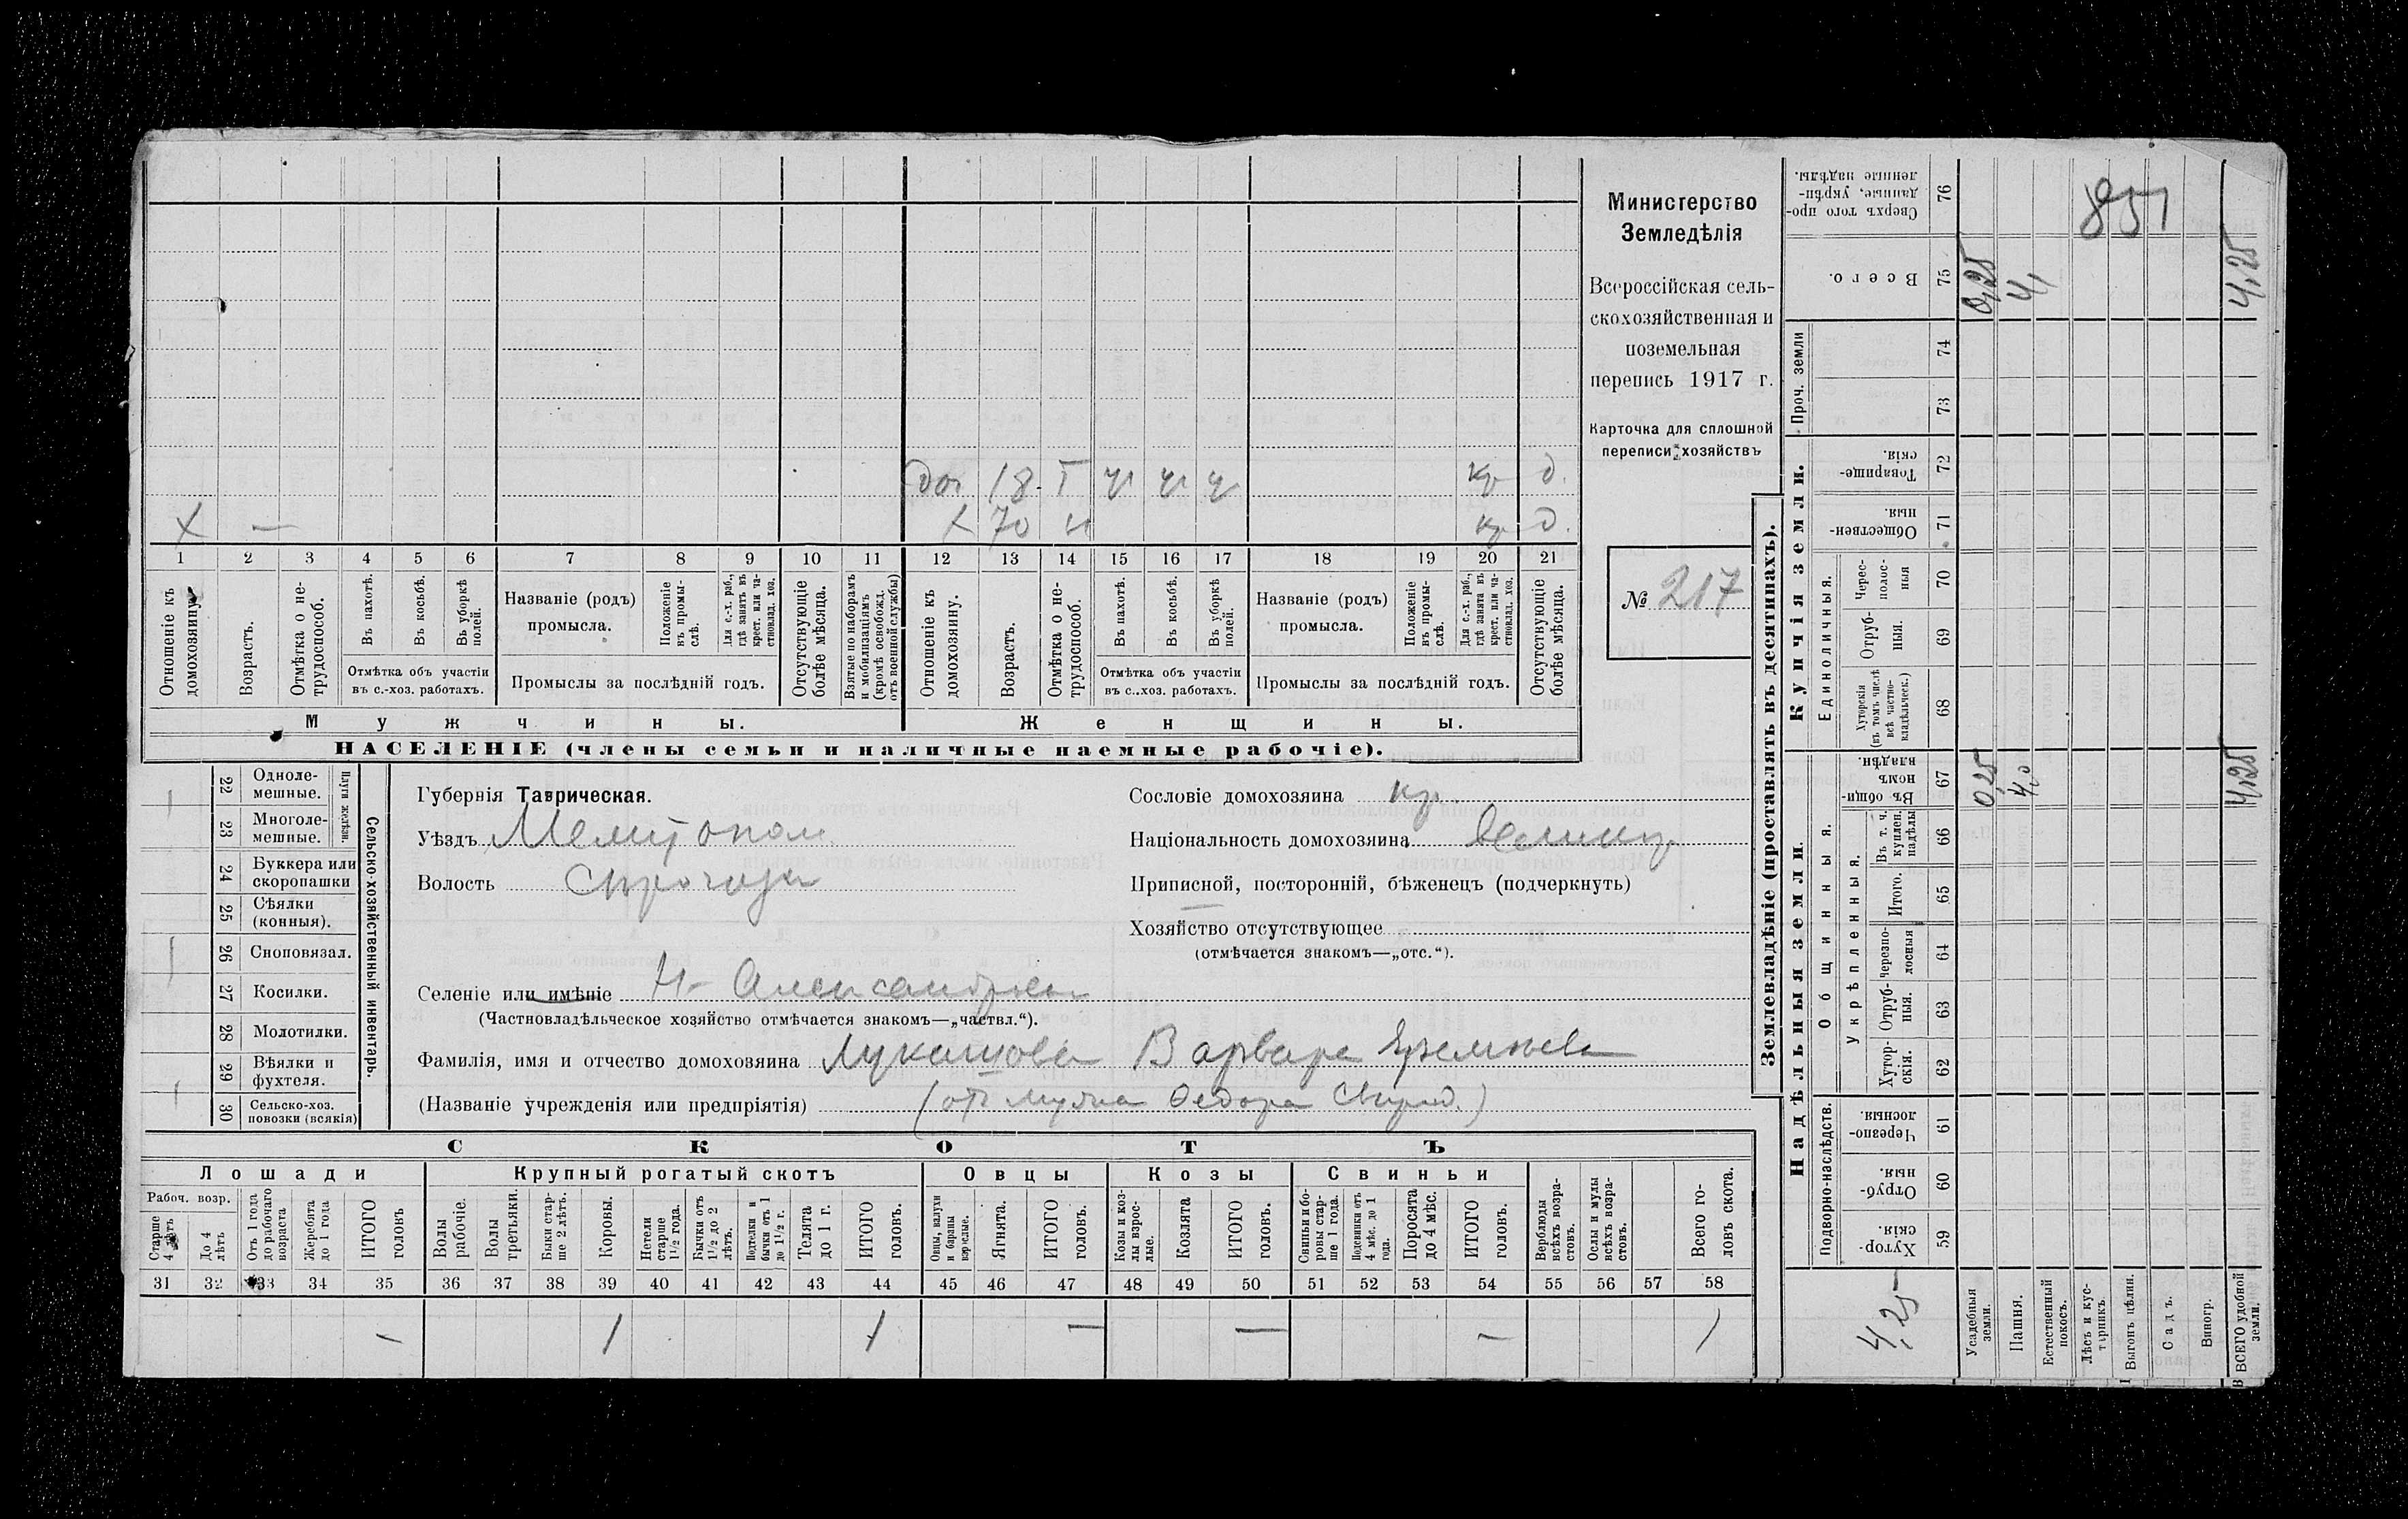 Министерство
Земледѣлія
Всероссійская сель-
скохозяйственная и
поземельная
перепись 1917 г.
Карточка для сплошной
переписи хозяйствъ
№ 217
дог 18 Т ч ч ч кр д.
X — X 70 н кр д.
1 2 3 4 5 6 7 8 9 10 11 12 13 14 15 16 17 18 19 20 21
Отношеніе къ домохозяину.
Возрастъ.
Отмѣтка о не-трудоспособ.
Въ пахотѣ.
Въ косьбѣ.
Въ уборкѣ полей.
Отмѣтка объ участіи
въ с.-хоз. работахъ.
Названіе (родъ)
промысла.
Положеніе въ промы-слѣ.
Для с.-х. раб., гдѣ занятъ въ крест. или ча-стновлад. хоз.
Промыслы за послѣдній годъ.
Отсутствующіе болѣе мѣсяца.
Взятые по наборамъ и мобилизаціямъ (кромѣ освобожд. отъ военной службы)
Отношеніе къ домохозяину.
Возрастъ.
Отмѣтка о не-трудоспособ.
Въ пахотѣ.
Въ косьбѣ.
Въ уборкѣ полей.
Отмѣтка объ участіи
въ с.-хоз. работахъ.
Названіе (родъ)
промысла.
Положеніе въ промы-слѣ.
Для с.-х. раб., гдѣ занята въ крест. или ча-стновлад. хоз.
Промыслы за послѣдній годъ.
Отсутствующіе болѣе мѣсяца.
Мужчины. Женщины.
НАСЕЛЕНІЕ (члены семьи и наличные наемные рабочіе).
22 Одноле-мешные.
23 Многоле-мешные.
Плуги желѣзн.
24 Буккера или скоропашки
25 Сѣялки (конныя).
26 Сноповязал.
27 Косилки.
28 Молотилки.
29 Вѣялки и фухтеля.
30 Сельско-хоз. повозки (всякія)
Сельско-хозяйственный инвентарь.
Губернія Таврическая.
Уѣздъ Мелитопол
Волость
Селеніе или имѣніе Н- Александровка
(Частновладѣльческое хозяйство отмѣчается знакомъ—„частвл.“).
Фамилія, имя и отчество домохозяина Лукашова Варвара
(Названіе учрежденія или предпріятія) (отъ мужа Федора Свирид.)
Сословіе домохозяина кр.
Національность домохозяина великор
Приписной, посторонній, бѣженецъ (подчеркнуть)
Хозяйство отсутствующее
(отмѣчается знакомъ—„отс.“).
СКОТЪ
Лошади Крупный рогатый скотъ Овцы Козы Свиньи
Рабоч. возр.
Старше 4 лѣтъ
До 4 лѣтъ
Отъ 1 года до рабочаго возраста
Жеребята до 1 года
ИТОГО головъ
Волы рабочіе.
Волы третьяки.
Быки стар-ше 2 лѣтъ.
Коровы.
Нетели старше 1½ года.
Бычки отъ 1½ до 2 лѣтъ.
Подтелки и бычки отъ 1 до 1½ г.
Телята до 1 г.
ИТОГО головъ.
Овцы, валухи и бараны взрослые.
Ягнята.
ИТОГО головъ.
Козы и коз-лы взрос-лые.
Козлята
ИТОГО головъ.
Свиньи и бо-ровы стар-ше 1 года.
Подсвинки отъ 4 мѣс. до 1 года.
Поросята до 4 мѣс.
ИТОГО головъ.
Верблюды всѣхъ возра-стовъ.
Ослы и мулы всѣхъ возра-стовъ.
Всего го-ловъ скота.
31 32 33 34 35 36 37 38 39 40 41 42 43 44 45 46 47 48 49 50 51 52 53 54 55 56 57 58
— 1 1 — — — 1
Землевладѣніе (проставлять въ десятинахъ).
Надѣльныя земли. Купчія земли. Проч. земли
Подворно-наслѣдств.
Общинныя.
Укрѣпленныя.
Единоличныя.
Хутор-скія. 59
Отруб-ныя. 60
Черезпо-лосныя. 61
Хутор-скія. 62
Отруб-ныя. 63
Черезпо-лосныя 64
Итого. 65
Въ т. ч. куплен. надѣлы 66
Въ общи-номъ владѣн. 67
Хуторскія (въ томъ числѣ всѣ частно-владѣльческ.) 68
Отруб-ныя. 69
Черес-полос-ныя 70
Обществен-ныя. 71
Товарище-скія. 72
73
74
Всего. 75
Сверхъ того про-данные, укрѣп-ленные надѣлы. 76
4,25
Усадебныя земли. 0,25 0,25
Пашня. 4,0 4,
Естественный покосъ.
Лѣсъ и кус-тарникъ.
Выгонъ цѣлин.
Садъ.
Виногр.
ВСЕГО удобной земли. 4,25 4,25
851